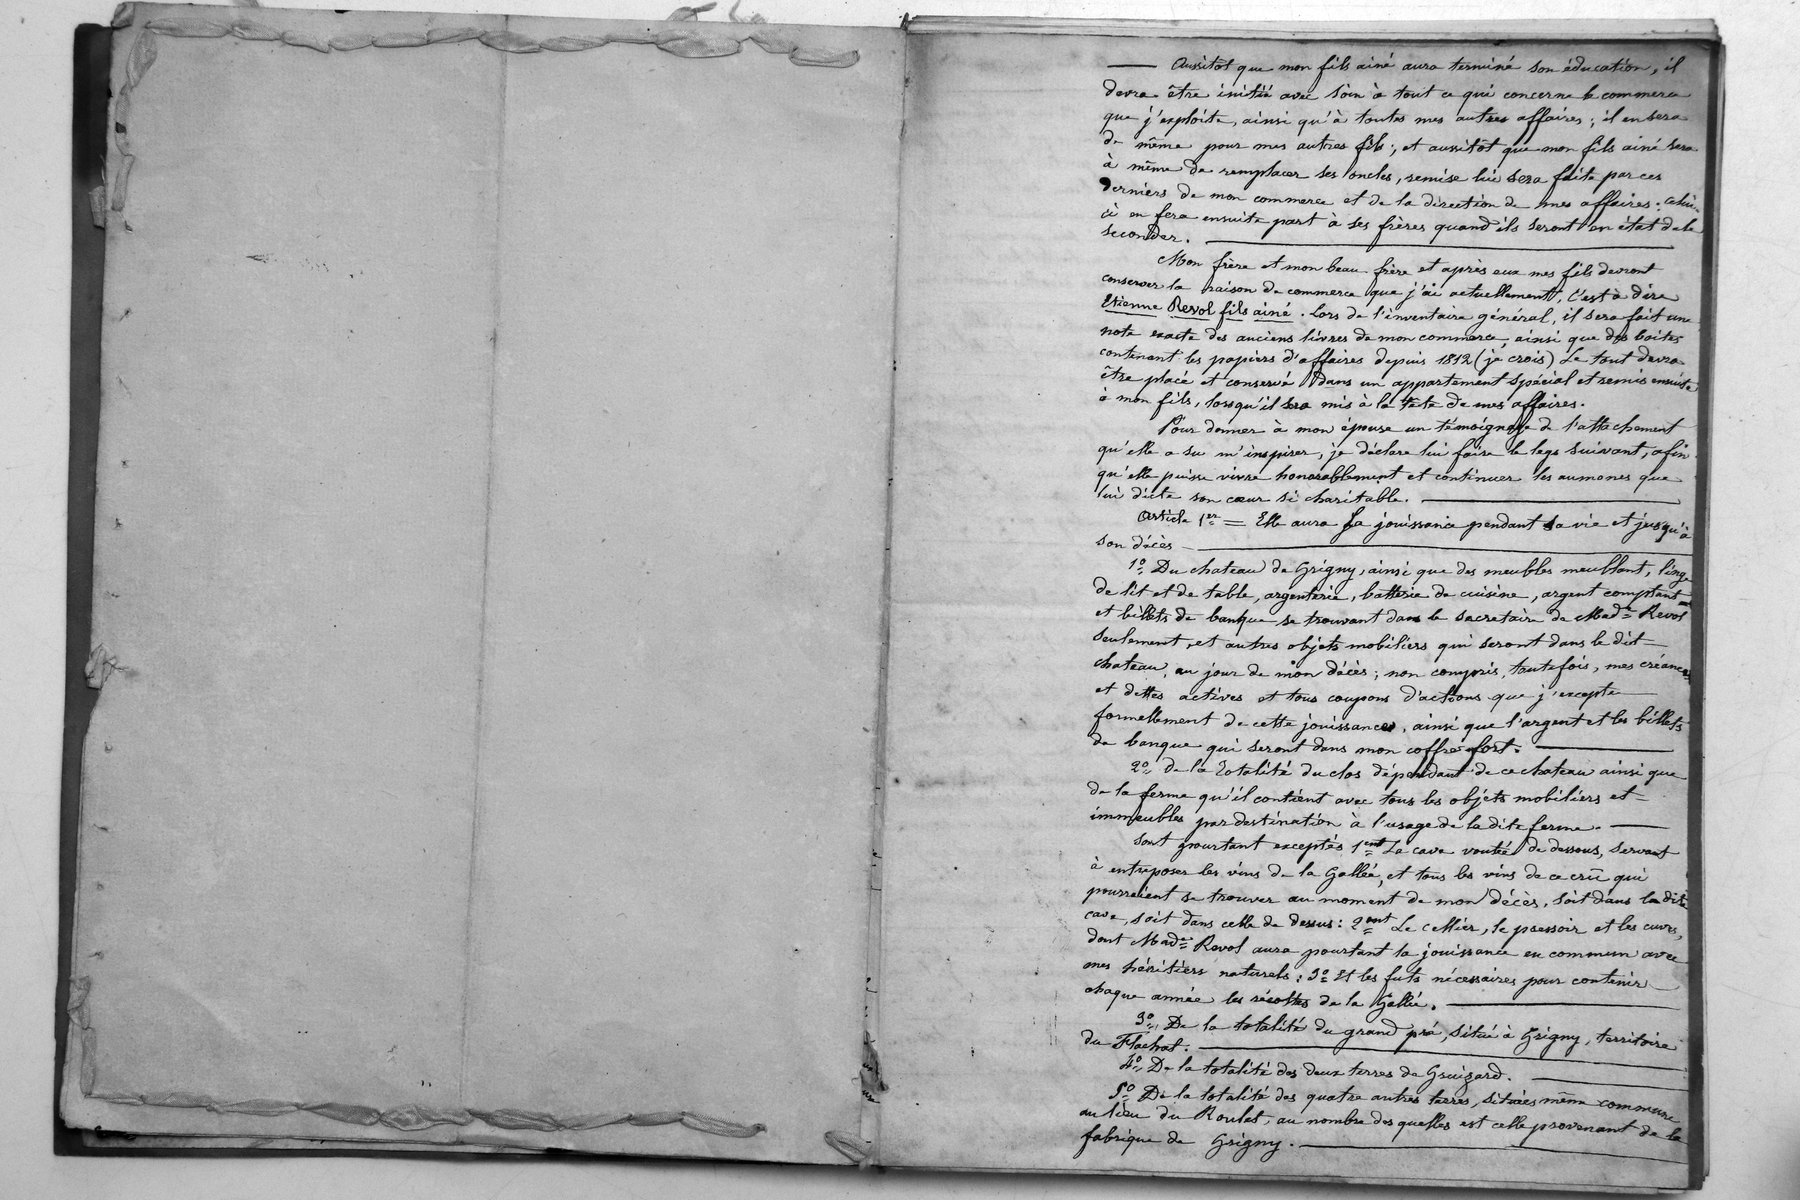 Aussitôt que mon fils ainé aura terminé son éducation, il
devra être initié avec soin à tout ce qui concerne le commerce
que j'exploite, ainsi qu'à toutes mes autres affaires ; il en sera
de même pour mes autres fils ; et aussitôt que mon fils ainé sera
à même de remplacer ses oncles, remise lui sera faite par ces
derniers de mon commerce et de la direction de mes affaires : celui-
ci en fera ensuite part à ses frères quand ils seront en état de le
seconder.
Mon frère et mon beau frère et après eux mes fils devront
conserver la raison de commerce que j'ai actuellement, c'est à dire
Etienne Revol fils ainé. Lors de l'inventaire général, il sera fait une
note exacte des anciens livres de mon commerce, ainsi que des boites
contenant les papiers d'affaires depuis 1812 (je crois) Le tout devra
être placé et conservé dans un appartement spécial et remis ensuite
à mon fils, lorsqu'il sera mis à la tête de mes affaires.
Pour donner à mon épouse un témoignage de l'attachement
qu'elle a su m'inspirer, je déclare lui faire le legs suivant, afin
qu'elle puisse vivre honorablement et continuer les aumones que
lui dicte son cœur si charitable.
Article 1er = Elle aura la jouissance pendant sa vie et jusqu'à
son décès
1o Du chateau de Grigny, ainsi que des meubles meublant, linge
de lit et de table, argenterie, batterie de cuisine, argent comptant
et billets de banque se trouvant dans le secretaire de Made Revol
seulement, et autres objets mobiliers qui seront dans le dit
chateau, au jour de mon décès ; non compris, toutefois, mes créances
et dettes actives et tous coupons d'actions que j'excepte
formellement de cette jouissance, ainsi que l'argent et les billets
de banque qui seront dans mon coffre fort.
2o De la totalité du clos dépendant de ce chateau ainsi que
de la ferme qu'il contient avec tous les objets mobiliers et
immeubles par destination à l'usage de la dite ferme.
Sont pourtant exceptés 1ent La cave voutée de dessous, servant
à entreposer les vins de la Gallée, et tous les vins de ce crû qui
pourraient se trouver au moment de mon décès, soit dans la dite
cave, soit dans celle de dessus : 2ent Le cellier, le pressoir et les cuves,
dont Made Revol aura pourtant la jouissance en commun avec
mes héritiers naturels : 3o Et les futs nécessaires pour contenir
chaque année les récoltes de la Gallée.
3o De la totalité du grand pré, situé à Grigny, territoire
du Flachat.
4o De la totalité des deux terres de Guizard.
5o De la totalité des quatre autres terres, situées même commune
au lieu du Roulet, au nombre des quelles est celle provenant de la
fabrique de Grigny.